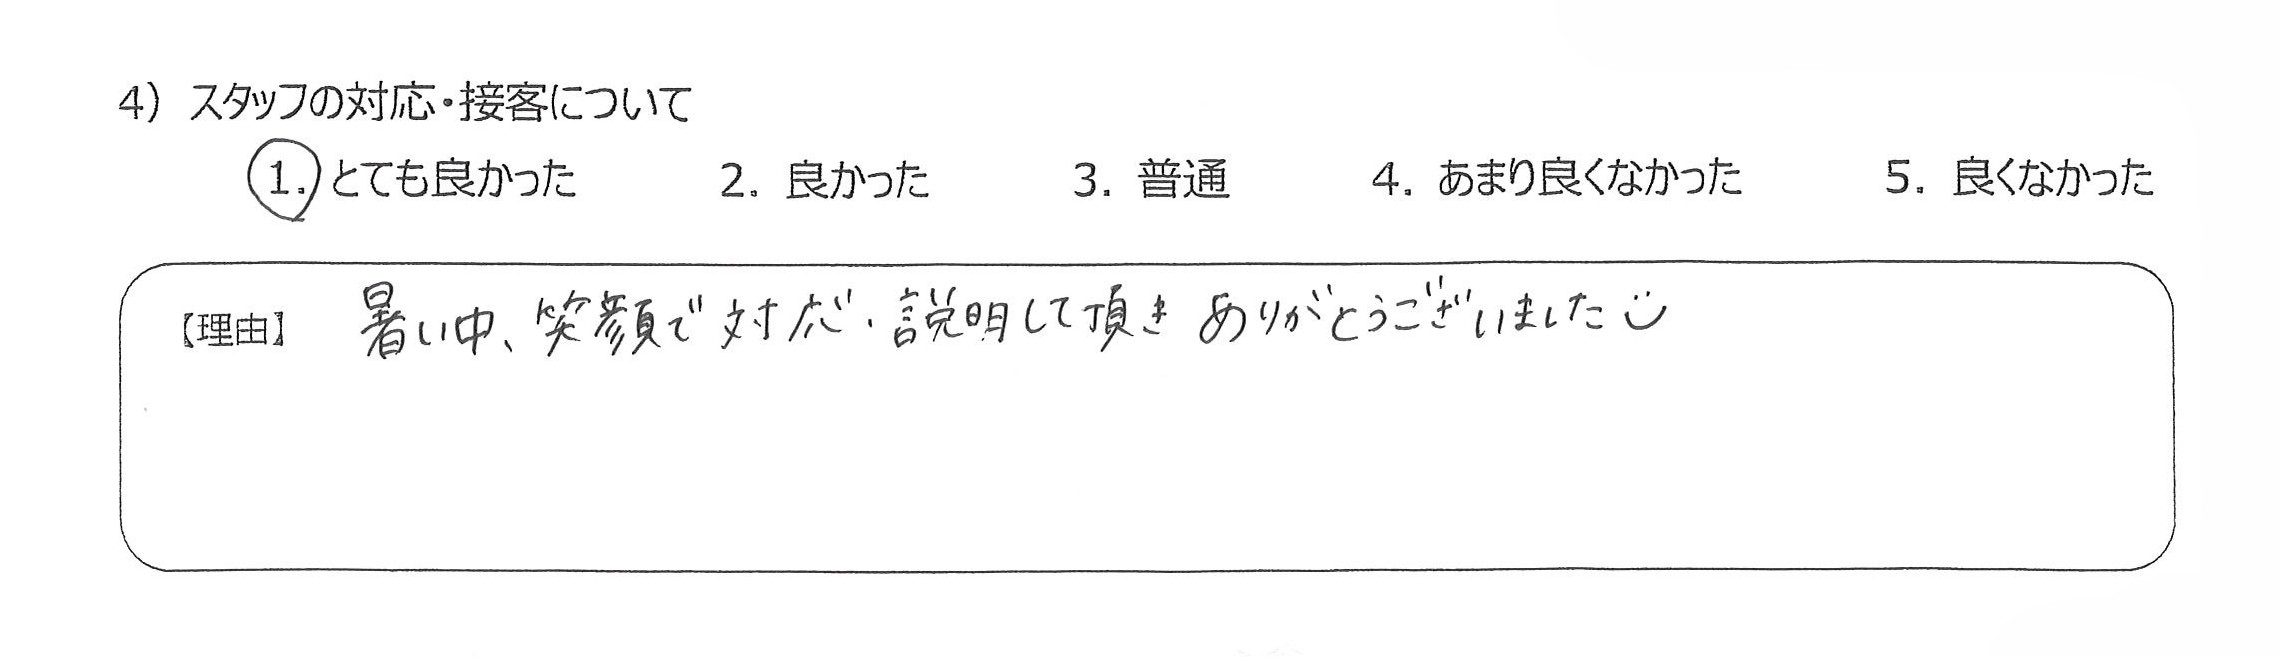 4) スタッフの対応・接客について
1. とても良かった 2. 良かった 3. 普通 4. あまり良くなかった 5. 良くなかった
【理由】 暑い中、笑顔で対応・説明して頂きありがとうございました